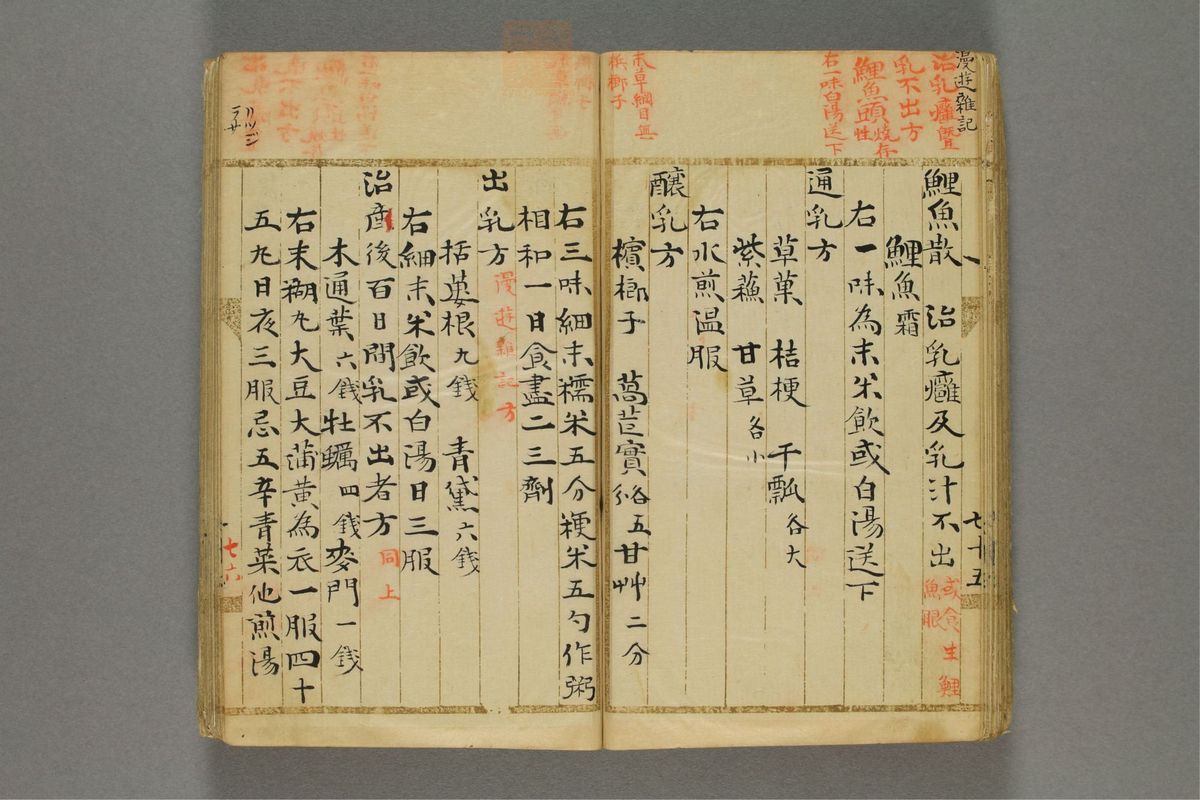 漫遊雜記
治乳癰暨
乳不出方
鯉魚頭燒存性
右一味白湯送下
鯉魚散 治乳癰及乳汁不出 或食生鯉魚眼
鯉魚霜
右一味為末米飲或白湯送下
通乳方
草菓 桔梗 干瓢各大
紫蘓 甘草各小
右水煎温服
釀乳方
檳榔子 萵苣實各五 甘艸二分
七十五
本草綱目無
檳榔子
右三味細末糯米五分粳米五勺作粥
相和一日食盡二三劑
出乳方 漫遊雜記方
括蔞根九錢 青黛六錢
右細末米飲或白湯日三服
治産後百日間乳不出者方 同上
木通葉六錢牡蠣四錢麥門一錢
右末糊丸大豆大蒲黄為衣一服四十
五丸日夜三服忌五辛青菜他煎湯
七六